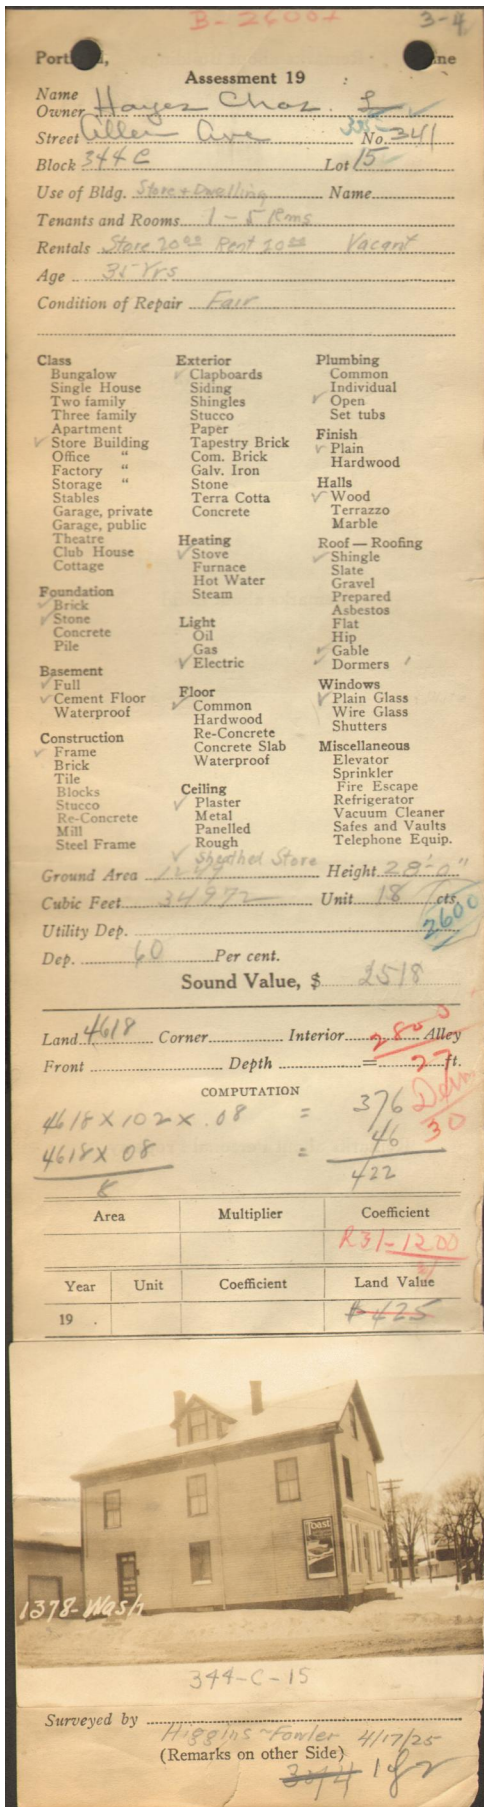 3-4
Assessment 19
Name
Owner Hayes Chas. L
Street Allen Ave No. 341
Block 344 C Lot 15
Use of Bldg. Store + Dwelling Name
Tenants and Rooms 1 - 5 Rms
Rentals Store 20 00 Rent 20 00 Vacant
Age 35 Yrs
Condition of Repair Fair
Class
Bungalow
Single House
Two family
Three family
Apartment
✓ Store Building
Office "
Factory "
Storage "
Stables
Garage, private
Garage, public
Theatre
Club House
Cottage
Foundation
✓ Brick
✓ Stone
Concrete
Pile
Basement
✓ Full
✓ Cement Floor
Waterproof
Construction
✓ Frame
Brick
Tile
Blocks
Stucco
Re-Concrete
Mill
Steel Frame
Exterior
✓ Clapboards
Siding
Shingles
Stucco
Paper
Tapestry Brick
Com. Brick
Galv. Iron
Stone
Terra Cotta
Concrete
Heating
✓ Stove
Furnace
Hot Water
Steam
Light
Oil
Gas
✓ Electric
Floor
✓ Common
Hardwood
Re-Concrete
Concrete Slab
Waterproof
Ceiling
✓ Plaster
Metal
Panelled
Rough
✓ Sheathed Store
Plumbing
Common
Individual
✓ Open
Set tubs
Finish
✓ Plain
Hardwood
Halls
✓ Wood
Terrazzo
Marble
Roof — Roofing
✓ Shingle
Slate
Gravel
Prepared
Asbestos
Flat
Hip
✓ Gable
✓ Dormers 1
Windows
✓ Plain Glass
Wire Glass
Shutters
Miscellaneous
Elevator
Sprinkler
Fire Escape
Refrigerator
Vacuum Cleaner
Safes and Vaults
Telephone Equip.
Ground Area 1249 Height 28'-0"
Cubic Feet 34972 Unit 18 cts.
2600
Utility Dep.
Dep. 60 Per cent.
Sound Value, $ 2518
2800
Land 4618 Corner Interior Alley
Front Depth = ft.
27
COMPUTATION
4618 X 102 X .08 = 376
4618 X 08 = 46
8 422
30
Area Multiplier Coefficient
R31-1200
Year Unit Coefficient Land Value
19 . $425
Toast
1378-Wash
344-C-15
Surveyed by Higgins - Fowler 4/17/25
(Remarks on other Side)